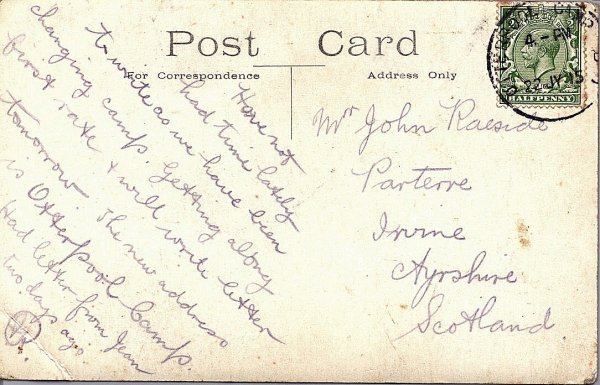 Post Card
For Correspondence
Address Only
Have not
had time lately
to write as we have been
changing camp. Getting along
first rate & will write letter
tomorrow. The new address
is Otterpool Camp.
Had letter from Jean
two days ago.
Mr John Raeside
Parterre
Irvine
Ayrshire
Scotland
4 - PM
22 JY 15
HALFPENNY